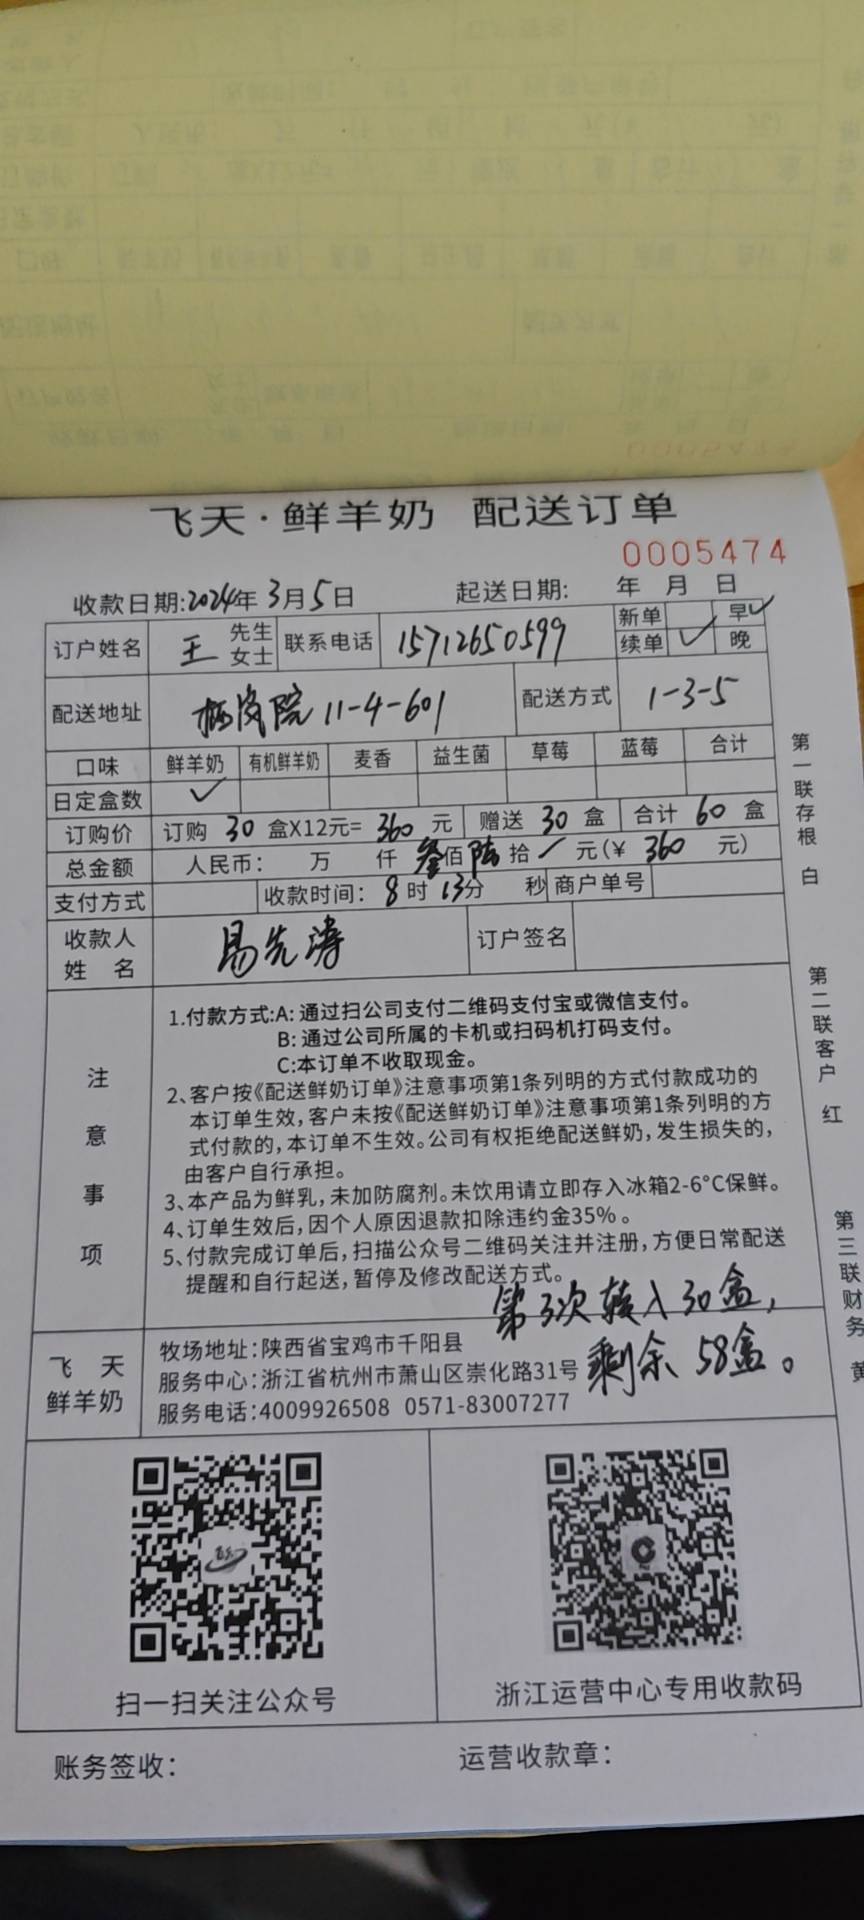 飞天·鲜羊奶 配送订单
0005474
收款日期:2024年3月5日 起送日期: 年 月 日
订户姓名 王 先生 女士 联系电话 15712650599 新单 早✓ 续单 ✓ 晚
配送地址 院 11-4-601 配送方式 1-3-5
口味 鲜羊奶 有机鲜羊奶 麦香 益生菌 草莓 蓝莓 合计
日定盒数 ✓
订购价 订购 30 盒X12元= 360 元 赠送 30 盒 合计 60 盒
总金额 人民币: 万 仟 叁佰 陆拾 / 元(¥ 360 元)
支付方式 收款时间: 8时13分 秒 商户单号
收款人姓名 易先涛 订户签名
注意事项
1.付款方式:A: 通过扫公司支付二维码支付宝或微信支付。
B: 通过公司所属的卡机或扫码机打码支付。
C:本订单不收取现金。
2、客户按《配送鲜奶订单》注意事项第1条列明的方式付款成功的
本订单生效,客户未按《配送鲜奶订单》注意事项第1条列明的方
式付款的,本订单不生效。公司有权拒绝配送鲜奶,发生损失的,
由客户自行承担。
3、本产品为鲜乳,未加防腐剂。未饮用请立即存入冰箱2-6°C保鲜。
4、订单生效后,因个人原因退款扣除违约金35%。
5、付款完成订单后,扫描公众号二维码关注并注册,方便日常配送
提醒和自行起送,暂停及修改配送方式。
第3次转入30盒,
剩余58盒。
飞天鲜羊奶
牧场地址:陕西省宝鸡市千阳县
服务中心:浙江省杭州市萧山区崇化路31号
服务电话:4009926508 0571-83007277
扫一扫关注公众号
浙江运营中心专用收款码
账务签收: 运营收款章:
第一联存根 白
第二联客户 红
第三联财务 黄